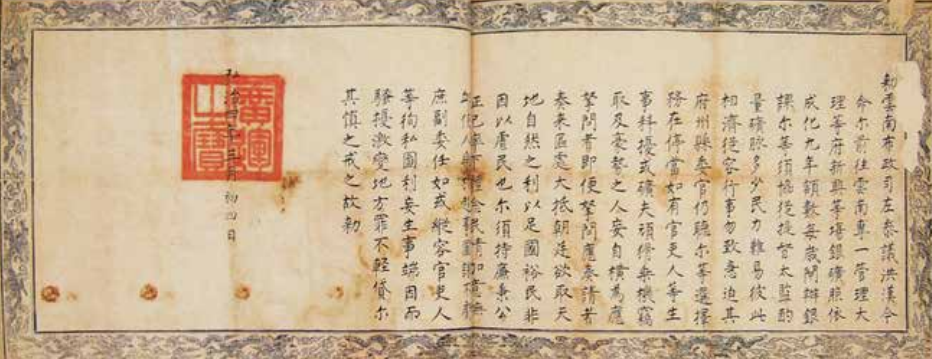 勅雲南布政司左參議洪漢今
命尔前往雲南專一管理大
理等府新興等場銀礦照依
成化九年額數每歲開辦銀
課尔等須協從提督太監酌
量礦脉多少民力難易彼此
相濟從容行事勿致急迫其
府州縣委官仍聽尔等選擇
務在停當如有官吏人等生
事科擾或礦夫頑猾乗機竊
取及豪勢之人妄自為應
拏問者即便拏問應奏請者
奏来區處大抵朝廷欲取天
地自然之利以足國裕民非
因以厲民也尔須持廉秉公
正己率下
庶副委任如或縱容官吏人
等徇私圖利妄生事端因而
騷擾激變地方罪不輕貸尔
其慎之戒之故勅
弘治四年三月初四日
廣運之寶